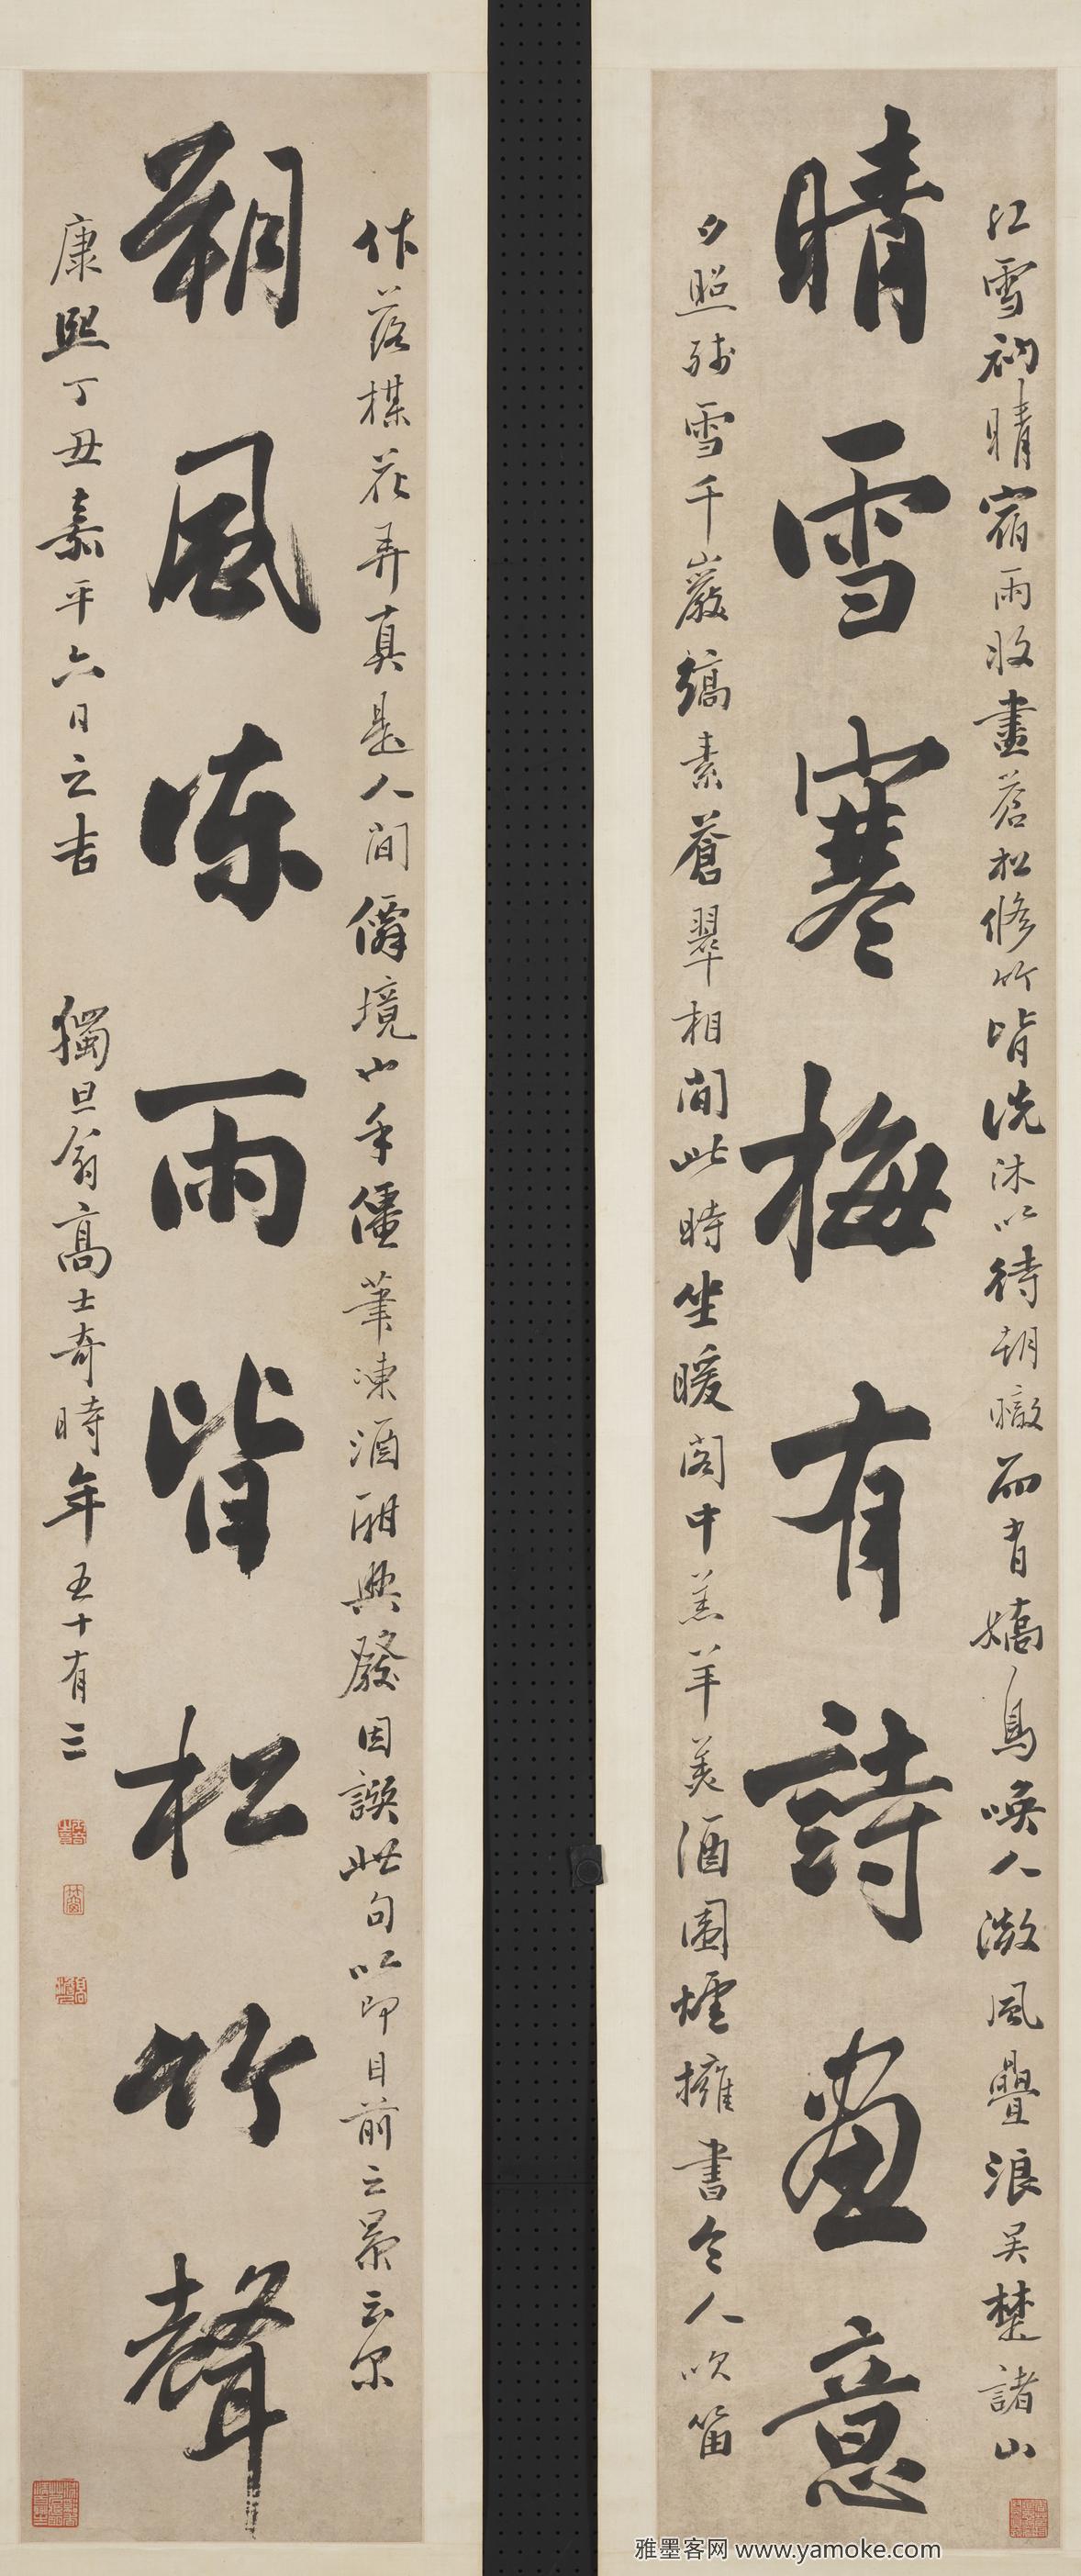 江雪初晴宿雨收畫蒼松脩竹皆洗沐以待朝暾而有嬌鳥喚人漵風疊浪吳楚諸山
晴雪寒梅有詩畫意
夕照残雪千巖縞素蒼翠相間此時坐暖閣中羔羊美酒圍爐擁書令人吹笛
作落楳花弄真是人間僊境也手僵筆凍酒酣興發因譔此句以即目前之景云尔
朔風凍雨皆松竹聲
康熙丁丑嘉平六日之吉 獨旦翁高士奇時年五十有三
雅墨客网 www.yamoke.com